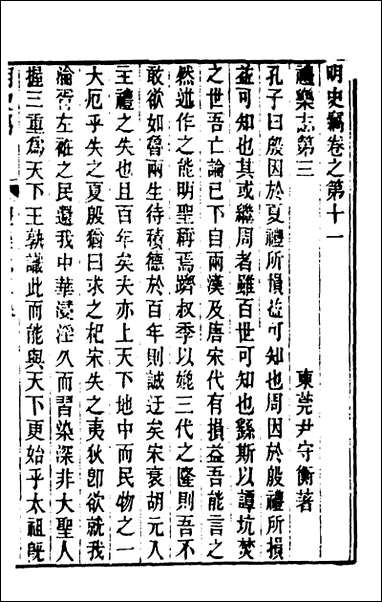 明史竊卷之第十一
禮樂志第三　東莞尹守衡著
孔子曰殷因於夏禮所損益可知也周因於殷禮所損
益可知也其或繼周者雖百世可知也繇斯以譚坑焚
之世吾亡論已下自兩漢及唐宋代有損益吾能言之
然述作之能明聖稱焉躋叔季以媲三代之隆則吾不
敢欲如魯兩生待積德於百年則誠迂矣宋衰胡元入
主禮之失也且百年矣夫亦上天下地中而民物之一
大厄乎失之夏殷猶曰求之杞宋失之夷狄卽欲就我
淪胥左袵之民還我中華寖淫久而習染深非大聖人
握三重爲天下王孰議此而能與天下更始乎太祖旣